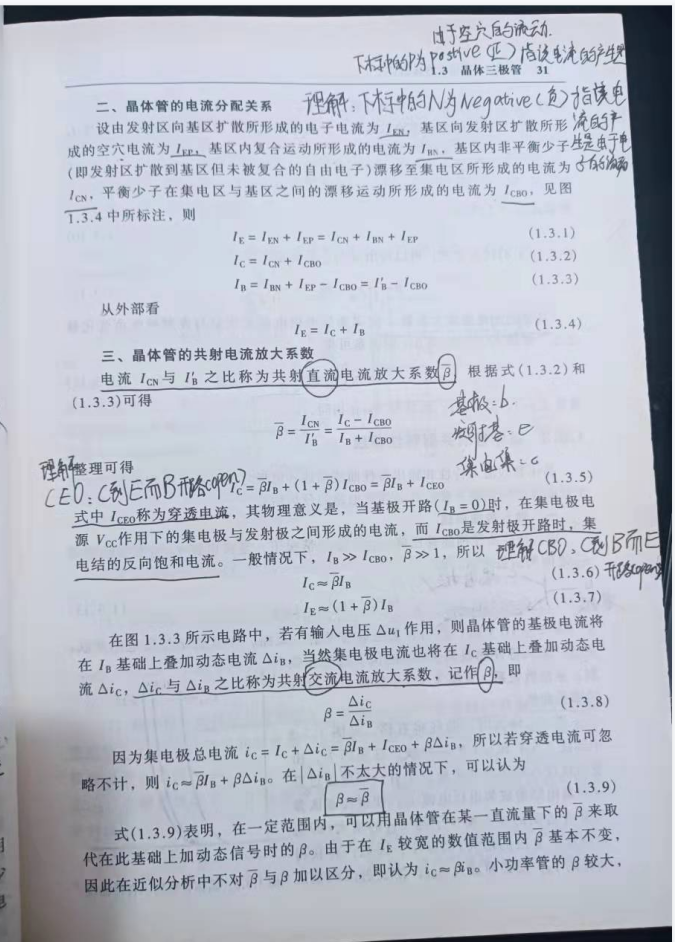 由于空穴的流动.
下标中的P为Postive(正)指该电流的产生是
1.3 晶体三极管 31
二、晶体管的电流分配关系
理解:下标中的N为Negative(负)指该电
流的产
生是由于电
子的流动
设由发射区向基区扩散所形成的电子电流为 IEN，基区向发射区扩散所形
成的空穴电流为 IEP，基区内复合运动所形成的电流为 IBN，基区内非平衡少子
(即发射区扩散到基区但未被复合的自由电子)漂移至集电区所形成的电流为
ICN，平衡少子在集电区与基区之间的漂移运动所形成的电流为 ICBO，见图
1.3.4 中所标注，则
IE = IEN + IEP = ICN + IBN + IEP (1.3.1)
IC = ICN + ICBO (1.3.2)
IB = IBN + IEP − ICBO = I′B − ICBO (1.3.3)
从外部看
IE = IC + IB (1.3.4)
三、晶体管的共射电流放大系数
电流 ICN与 I′B 之比称为共射直流电流放大系数β̄，根据式(1.3.2)和
(1.3.3)可得
基极:b.
β̄ = ICN/I′B = (IC − ICBO)/(IB + ICBO)
e
c
理解
整理可得
CEO:C到E而B开路(open)
IC = β̄IB + (1 + β̄)ICBO = β̄IB + ICEO (1.3.5)
式中 ICEO称为穿透电流，其物理意义是，当基极开路(IB = 0)时，在集电极电
源 VCC作用下的集电极与发射极之间形成的电流，而 ICBO是发射极开路时，集
电结的反向饱和电流。一般情况下，IB ≫ ICBO，β̄ ≫ 1，所以
理解CBO:C到B而E
开路(open)
IC ≈ β̄IB (1.3.6)
IE ≈ (1 + β̄)IB (1.3.7)
在图 1.3.3 所示电路中，若有输入电压 ΔuI 作用，则晶体管的基极电流将
在 IB 基础上叠加动态电流 ΔiB，当然集电极电流也将在 IC 基础上叠加动态电
流 ΔiC，ΔiC 与 ΔiB 之比称为共射交流电流放大系数，记作β，即
β = ΔiC/ΔiB (1.3.8)
因为集电极总电流 iC = IC + ΔiC = β̄IB + ICEO + βΔiB，所以若穿透电流可忽
略不计，则 iC ≈ β̄IB + βΔiB。在|ΔiB|不太大的情况下，可以认为
β ≈ β̄ (1.3.9)
式(1.3.9)表明，在一定范围内，可以用晶体管在某一直流量下的 β̄ 来取
代在此基础上加动态信号时的 β。由于在 IE 较宽的数值范围内 β̄ 基本不变，
因此在近似分析中不对 β̄ 与 β 加以区分，即认为 iC ≈ βiB。小功率管的 β 较大，